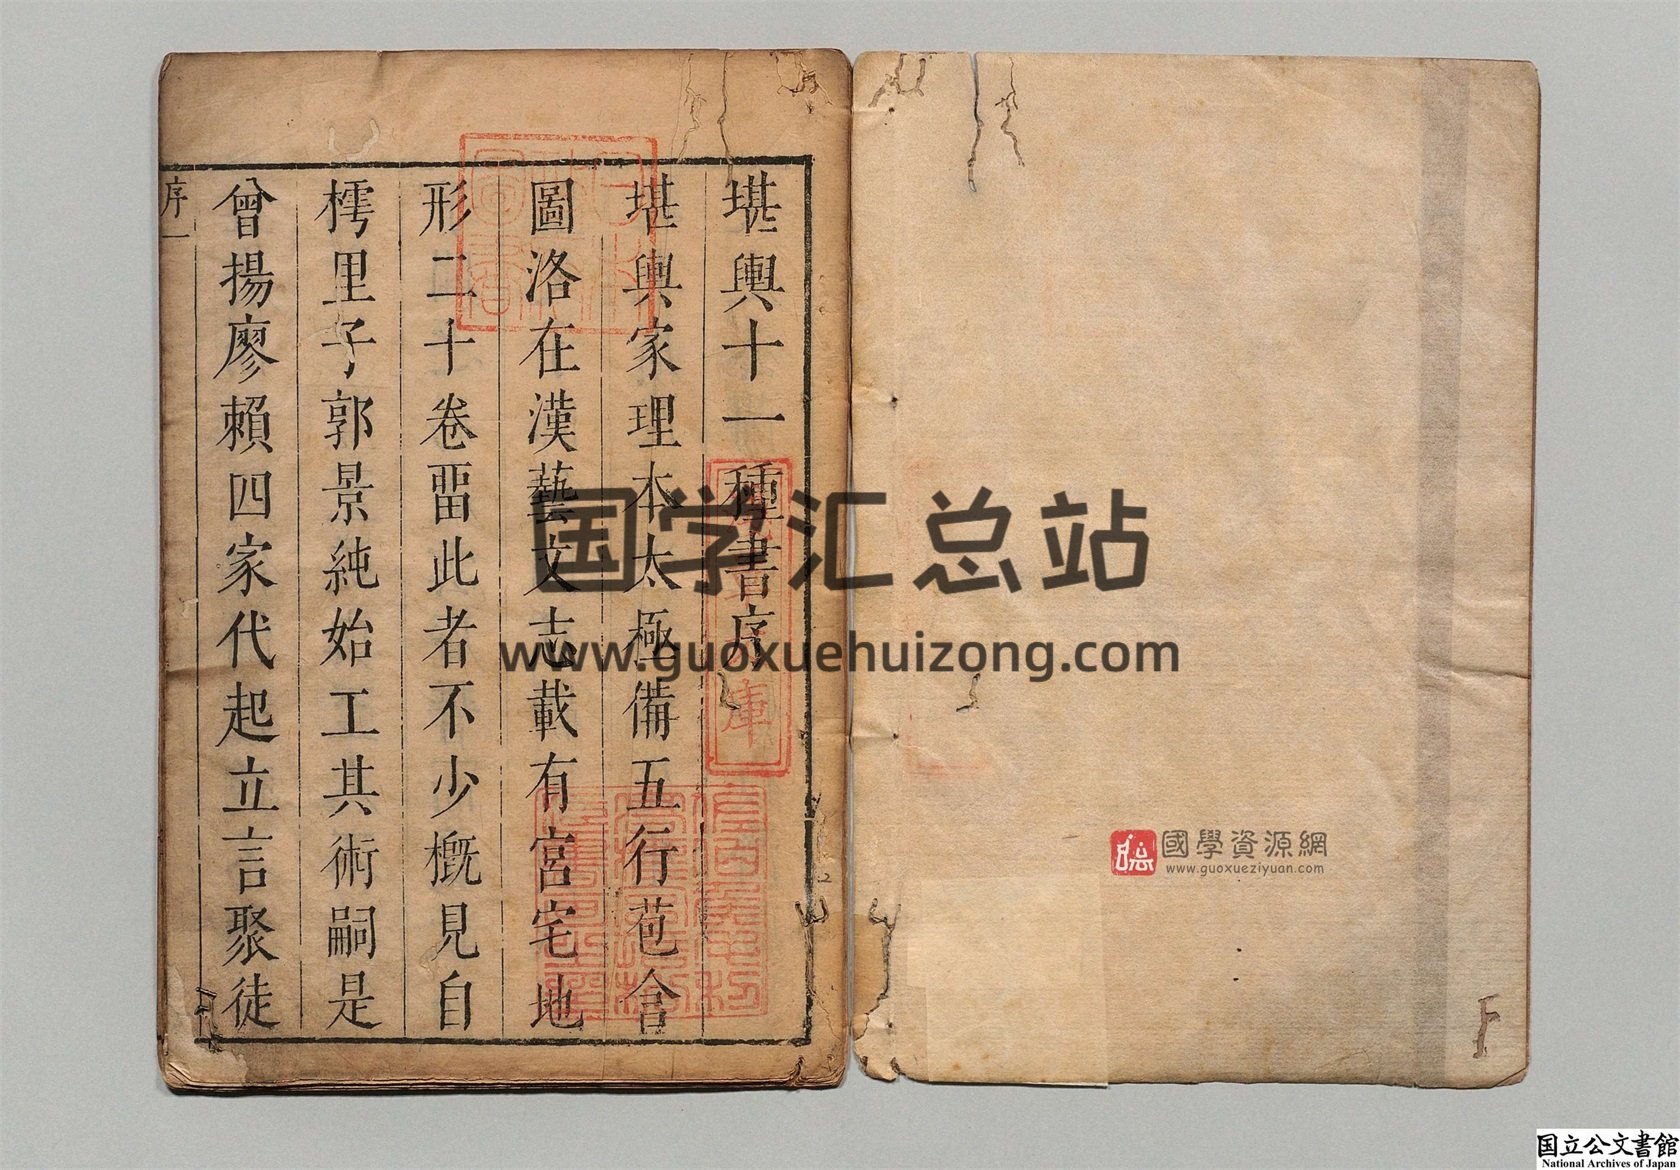 堪輿十一種書序
堪輿家理本太極備五行苞含
圖洛在漢藝文志載有宮宅地
形二十卷畱此者不少概見自
樗里子郭景純始工其術嗣是
曾揚廖賴四家代起立言聚徒
序一
庫
国学汇总站
www.guoxuehuizong.com
國學資源網
www.guoxueziyuan.com
国立公文書館
National Archives of Japan